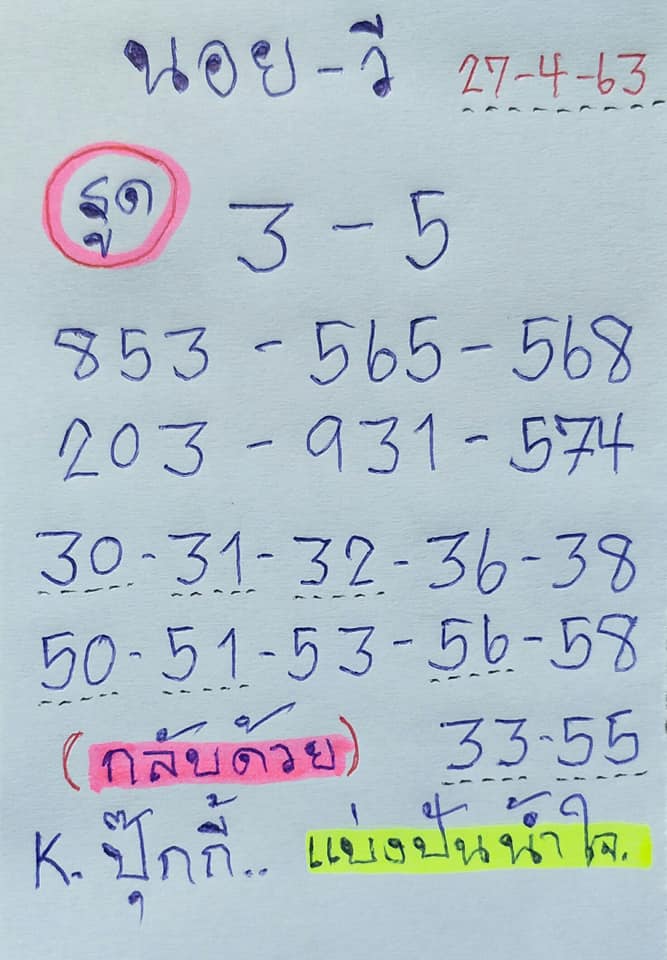 นอย - วี 27-4-63
รูด 3 - 5
853 - 565 - 568
203 - 931 - 574
30 - 31 - 32 - 36 - 38
50 - 51 - 53 - 56 - 58
(กลับด้วย) 33-55
K. ปุ๊กกี้.. แบ่งปันน้ำใจ.